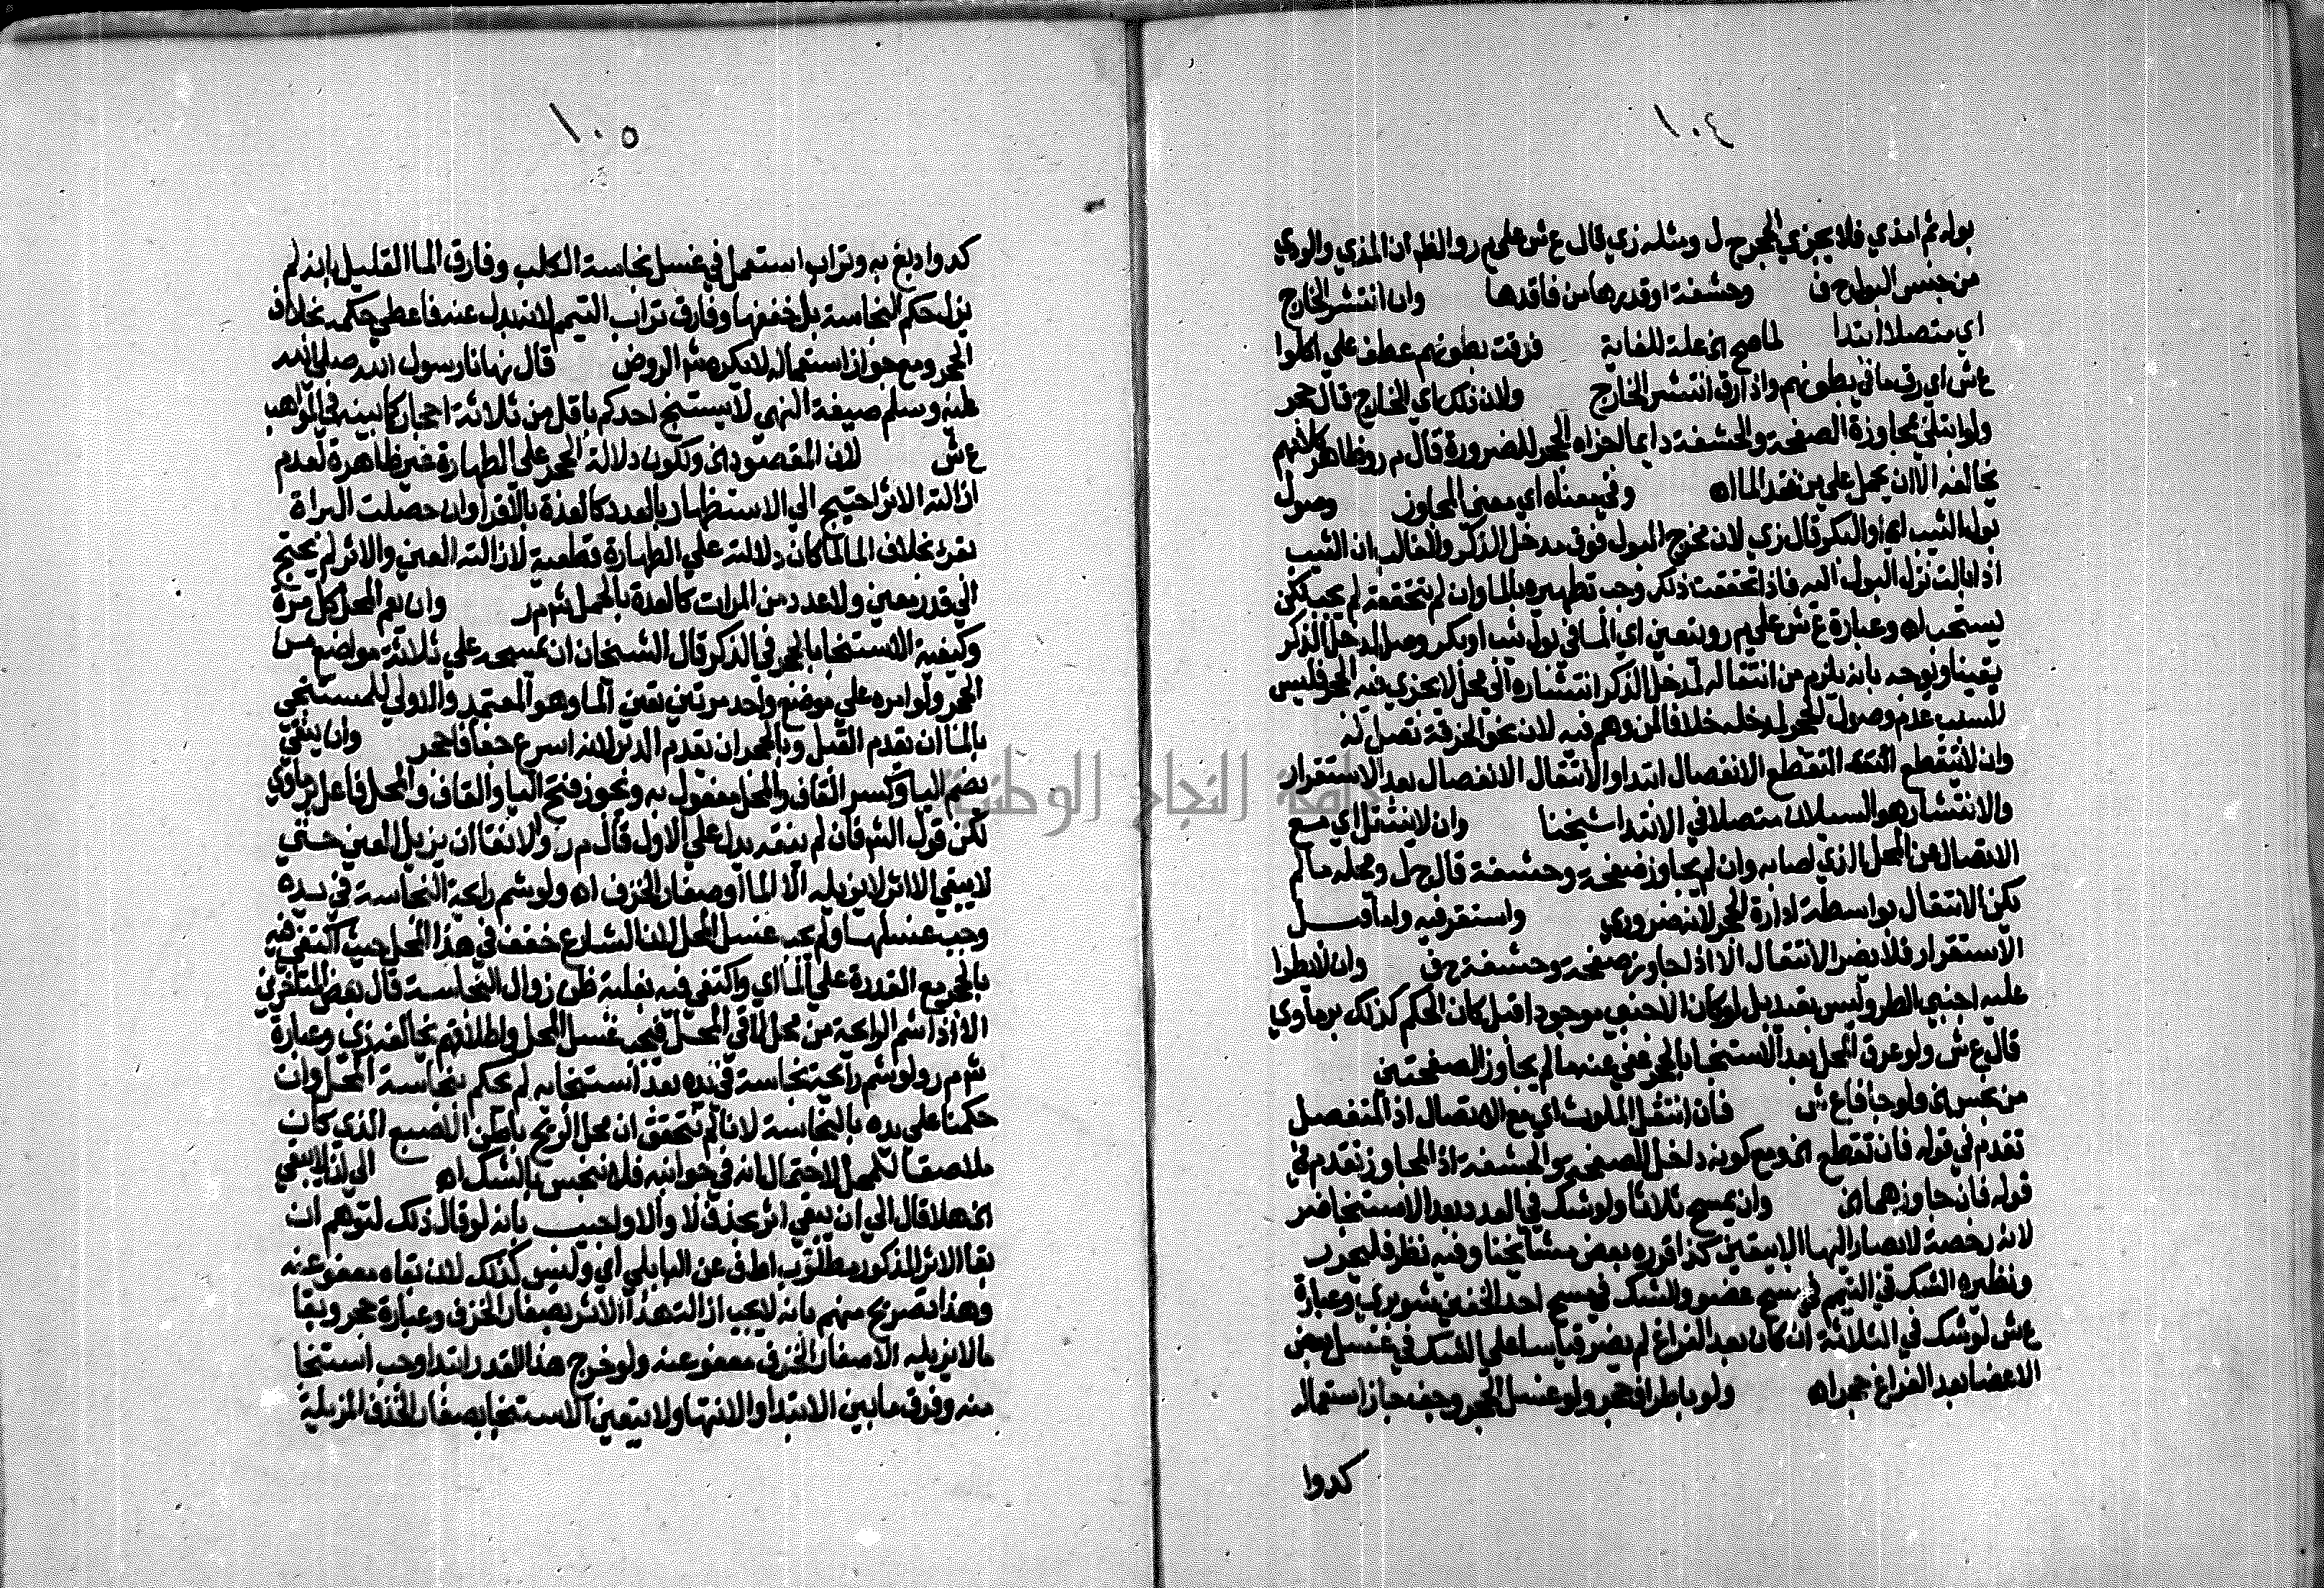 ١٠٤
بوله ثم امذي فلا يجزي الحجر ح ل ومثله زي قال ع ش على م ر والظ ان المذي والودي
من جنس البول ح ف وحشفة او قدرها من فاقدها وان انتشر الخارج
اي متصلا ابتدا لماصح الخ علة للغاية فرقت بطونهم عطف على اكلوا
ع ش اي رق ما في بطونهم واذا رق انتشر الخارج ولان ذلك اي الخارج قال حجر
ولو ابتلي بمجاوزة الصفحة والحشفة دايما اجزاه الحجر للضرورة قال م ر وظاهر كلامهم
يخالفه الا ان يحمل على من فقد الما اه وفي معناه اي معنى المجاوز وصول
بول الثيب اي او البكر قال زي لان مخرج البول فوق مدخل الذكر والغالب ان الثيب
اذا بالت نزل البول اليه فاذا تحققت ذلك وجب تطهيره بالما وان لم تتحققه لم يجب لكن
يستحب اه وعبارة ع ش على م ر ويتعين اي الما في بول ثيب او بكر وصل لمدخل الذكر
يقينا ويوجه بانه يلزم من انتقاله لمدخل الذكر انتشاره الى محل لا يجزي فيه الحجر فليس
للسبب عدم وصول الحجر لمدخله خلافا لمن وهم فيه لان نحو الخرقة تصل له
وان لا يتقطع التقطع الانفصال ابتدا والانتقال الانفصال بعد الاستقرار
والانتشار هو السيلان متصلا في الابتدا شيخنا وان لا ينتقل اي مع
الاتصال عن المحل الذي اصابه وان لم يجاوز صفحة وحشفة قال ح ل ومحله ما لم
يكن الانتقال بواسطة ادارة الحجر لانه ضروري واستقر فيه واما قبل
الاستقرار فلا يضر الانتقال الا اذا جاوز صفحة وحشفة ح ف وان لا يطرا
عليه اجنبي الطرو ليس بقيد بل لو كان الاجنبي موجودا قبل كان الحكم كذلك برماوي
قال ع ش ولو عرق المحل بعد الاستنجا بالحجر عفي عنه ما لم يجاوز الصفحتين
من نجس الخ ولو جافا ع ش فان انتقل الملوث اي مع الاتصال اذ المنفصل
تقدم في قوله فان تقطع الخ ومع كونه داخل الصفحة والحشفة اذ المجاوز تقدم في
قوله فان جاوزهما الخ وان يمسح ثلاثا ولو شك في العدد بعد الاستنجا ضر
لانه رخصة لا يصار اليها الا بيقين كذا قرره بعض مشايخنا وفيه نظر فليحرر
ونظيره الشك في التيمم في مسح عضو والشك في مسح احد الخفين شوبري وعبارة
ع ش لو شك في الثلاثة ان كان بعد الفراغ لم يضر قياسا على الشك في غسل بعض
الاعضا بعد الفراغ حجر اه ولو باطراف حجر ولو غسل الحجر وجف جاز استعماله
كدوا
١٠٥
كدوا دبغ به وتراب استعمل في غسل نجاسة الكلب وفارق الما القليل بانه لم
يزل حكم النجاسة بل خففها وفارق تراب التيمم لانه بدل عنه فاعطي حكمه بخلاف
الحجر ومع جواز استعماله لا يكره شرح الروض قال نهانا رسول الله صلى الله
عليه وسلم صيغة النهي لا يستنج احدكم باقل من ثلاثة احجار كما بينه في المواهب
ع ش لان المقصود الخ وتكون دلالة الحجر على الطهارة غير ظاهرة لعدم
ازالته الاثر احتيج الى الاستظهار بالعدد كالعدة بالاقرا وان حصلت البراة
بقرء بخلاف الما لما كان دلالته على الطهارة قطعية لازالته العين والاثر لم يحتج
الى قدر معين ولا عدد من المرات كالعدة بالحمل ش م ر وان يعم المحل كل مرة
وكيفية الاستنجا بالحجر في الذكر قال الشيخان ان يمسحه على ثلاثة مواضع من
الحجر ولو امره على موضع واحد مرتين تعين الما وهو المعتمد والاولى للمستنجي
بالما ان يقدم القبل وبالحجر ان يقدم الدبر لانه اسرع جفافا حجر وان ينقي
بضم اليا وكسر القاف والمحل مفعول به ويجوز فتح اليا والقاف والمحل فاعل برماوي
لكن قول الش فان لم ينقه يدل على الاول قال م ر والانقا ان يزيل العين حتى
لا يبقى الا اثر لا يزيله الا الما او صغار الخزف اه ولو شم رايحة النجاسة في يده
وجب غسلها ولم يجب غسل المحل لان الشارع خفف في هذا المحل حيث اكتفى فيه
بالحجر مع القدرة على الما اي واكتفى فيه بغلبة ظن زوال النجاسة قال بعض المتاخرين
الا اذا شم الرايحة من محل لاقى المحل فيجب غسل المحل واطلاقهم يخالفه زي وعبارة
ش م ر ولو شم رايحة نجاسة في يده بعد استنجايه لم يحكم بنجاسة المحل وان
حكمنا على يده بالنجاسة لانا لم نتحقق ان محل الريح باطن الاصبع الذي كان
ملاصقا للمحل لاحتمال انه في جوانبه فلا ننجس بالشك اه الى ان لا يبقى
الخ هلا قال الى ان يبقى اثر بحذف لا والا واجيب بانه لو قال ذلك لتوهم ان
بقا الاثر المذكور مطلوب اط ف عن البابلي اي وليس كذلك لان بقاه معفو عنه
وهذا تصريح منهم بانه لا يجب ازالة هذا الاثر بصغار الخزف وعبارة حجر وبقا
ما لا يزيله الا صغار الخزف معفو عنه ولو خرج هذا القدر ابتدا وجب استنجا
منه وفرق ما بين الابتدا والانتها ولا يتعين الاستنجا بصغار الخزف المزيلة
جامعة النجاح الوطنية